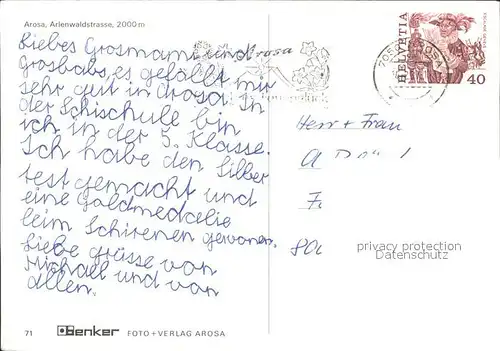 Arosa, Arlenwaldstrasse, 2000 m
Liebes Grosmami und
Grosbabs, es gefällt mir
sehr gut in Arosa. In
der Schischule bin
ich in der 5. Klasse.
Ich habe den Silber
test gemacht und
eine Goldmedalie
beim Schirenen gewonen.
Liebe grüsse von
Michael und von
allen.
71
Denker FOTO + VERLAG AROSA
Arosa
7050 AROSA
HELVETIA
40
Herr + Frau
privacy protection
Datenschutz